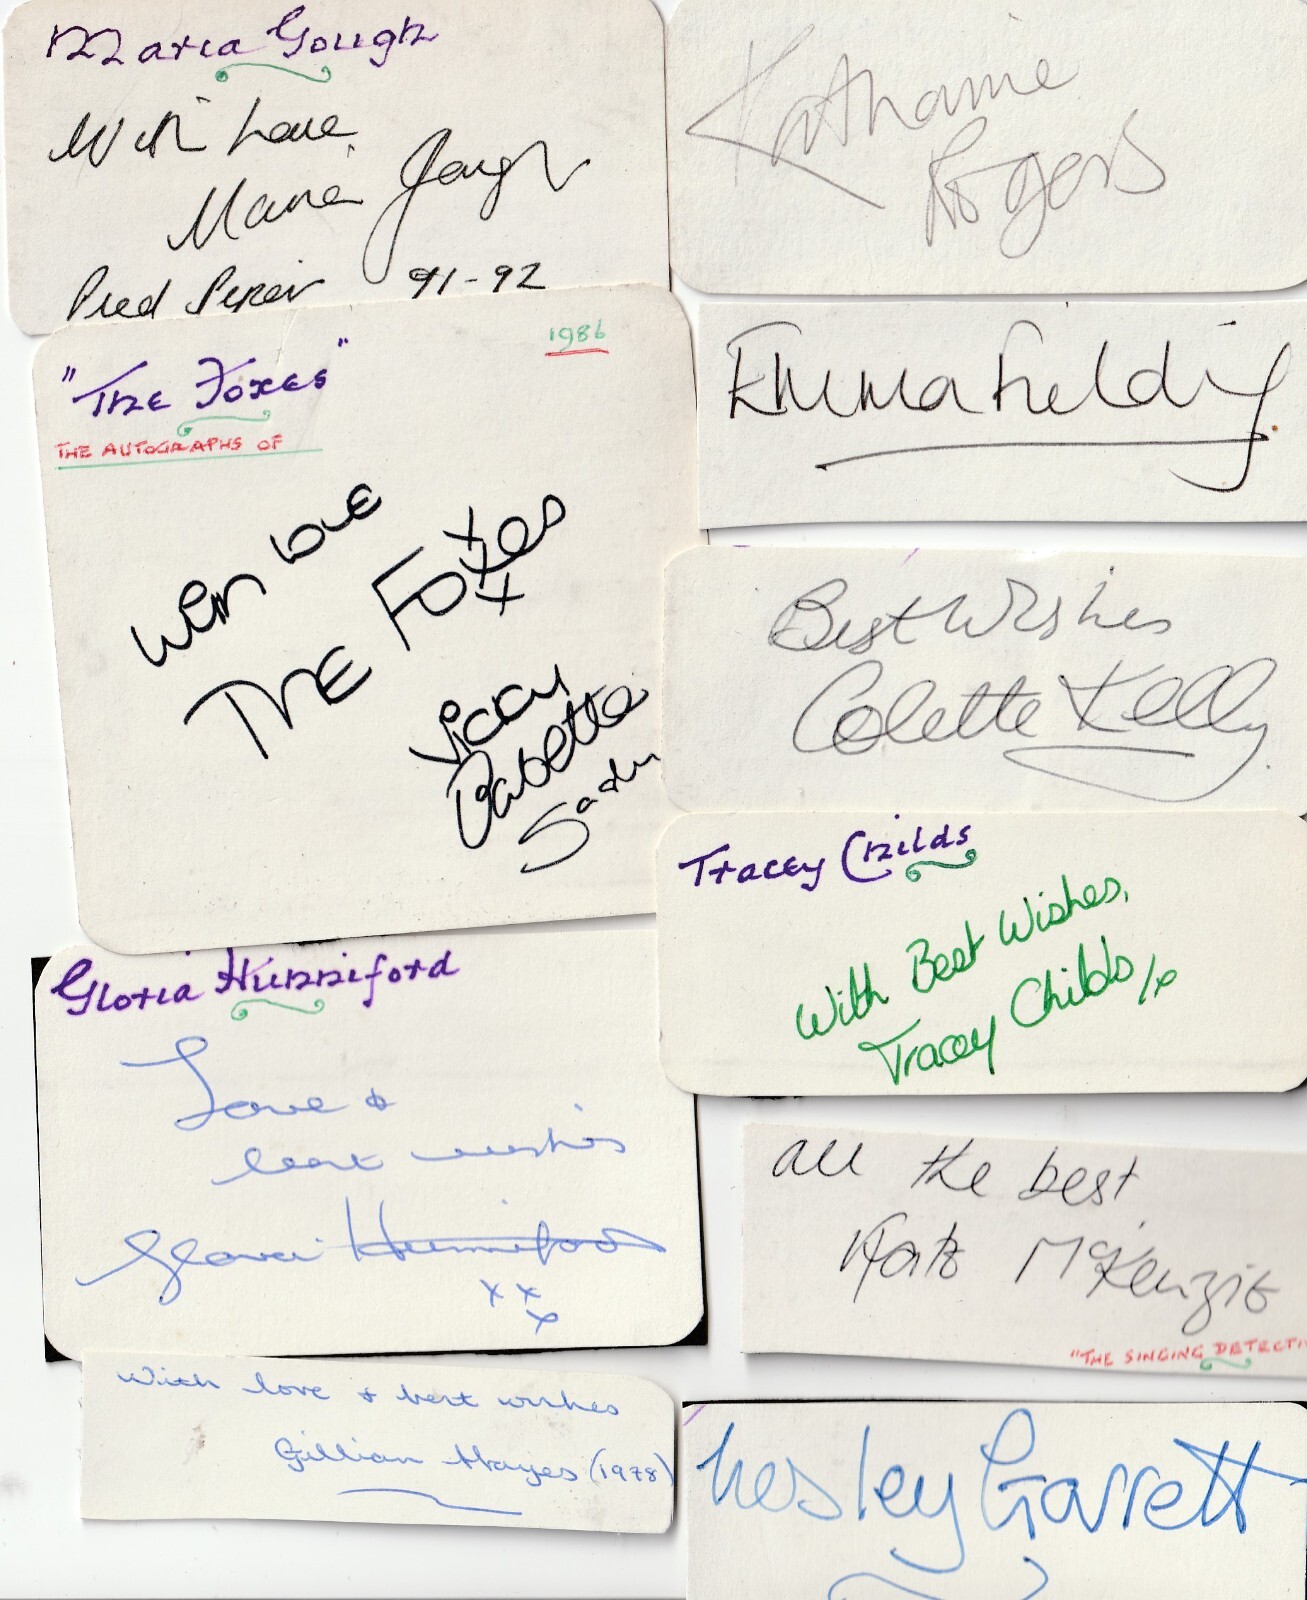 Maria Gough
With Love,
Maria Gough
Pied Piper 91-92
Katharine
Rogers
"The Foxes"
1986
THE AUTOGRAPHS OF
With love
THE FOXES
xxx
Vicky
Babette
Emma Fielding
Best Wishes
Colette Kelly
Tracey Childs
With Best Wishes,
Tracey Childs x
Gloria Hunniford
Love &
best wishes
Gloria Hunniford
xx
x
all the best
Kate McKenzie
"THE SINGING DETECTI
With love & best wishes
Gillian Hayes (1978)
Lesley Garrett